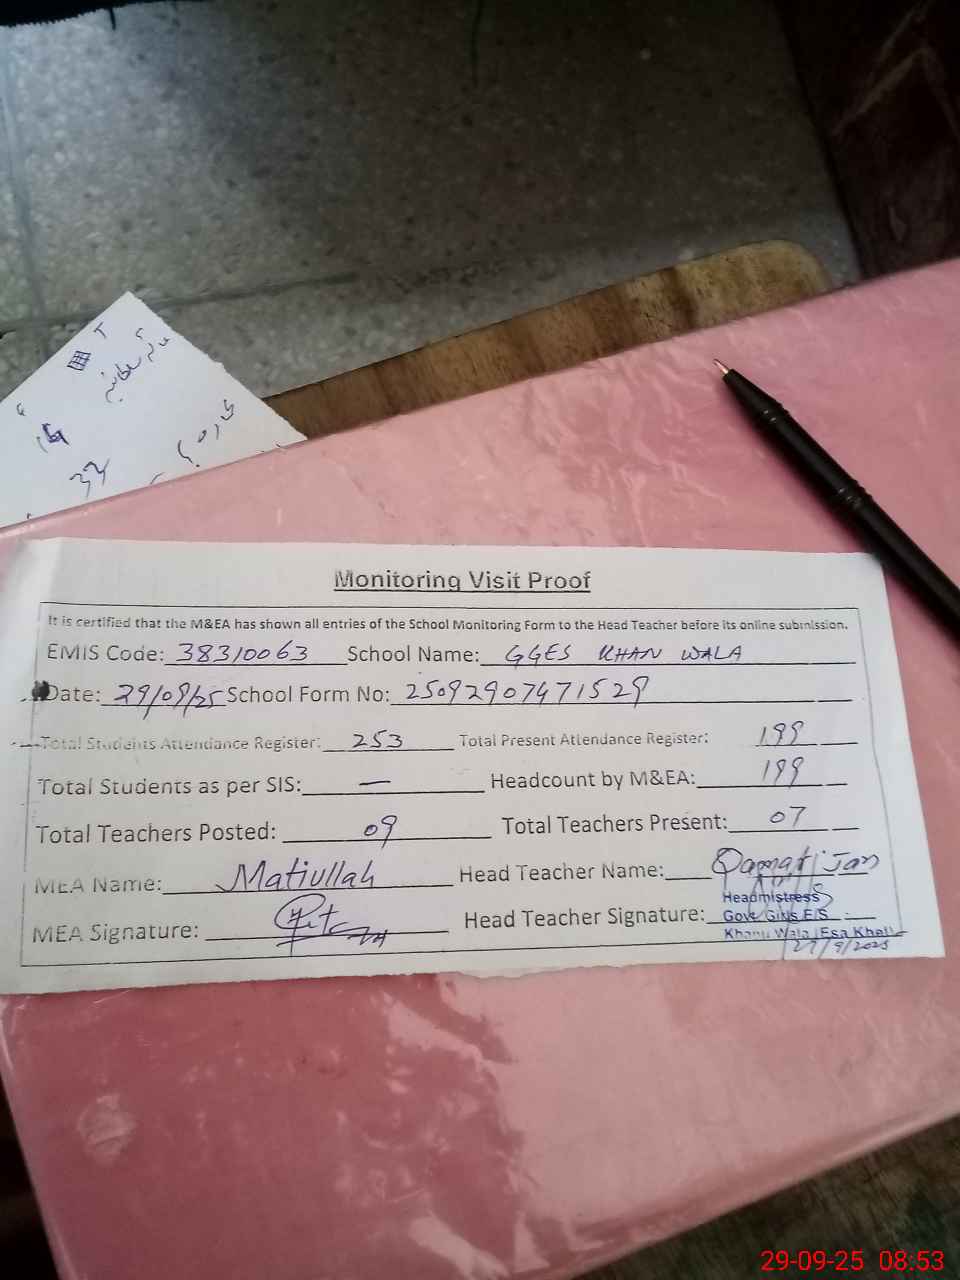 33
Monitoring Visit Proof
It is certified that the M&EA has shown all entries of the School Monitoring Form to the Head Teacher before its online submission.
EMIS Code: 38310063 School Name: GGES KHAN WALA
Date: 29/09/25 School Form No: 25092907471529
Total Students Attendance Register: 253 Total Present Attendance Register: 199
Total Students as per SIS: — Headcount by M&EA: 199
Total Teachers Posted: 09 Total Teachers Present: 07
MEA Name: Matiullah Head Teacher Name: Jan
MEA Signature: Head Teacher Signature:
Headmistress
Govt Girls E/S
Khanu Wala Esa Khel
29/9/2025
29-09-25 08:53